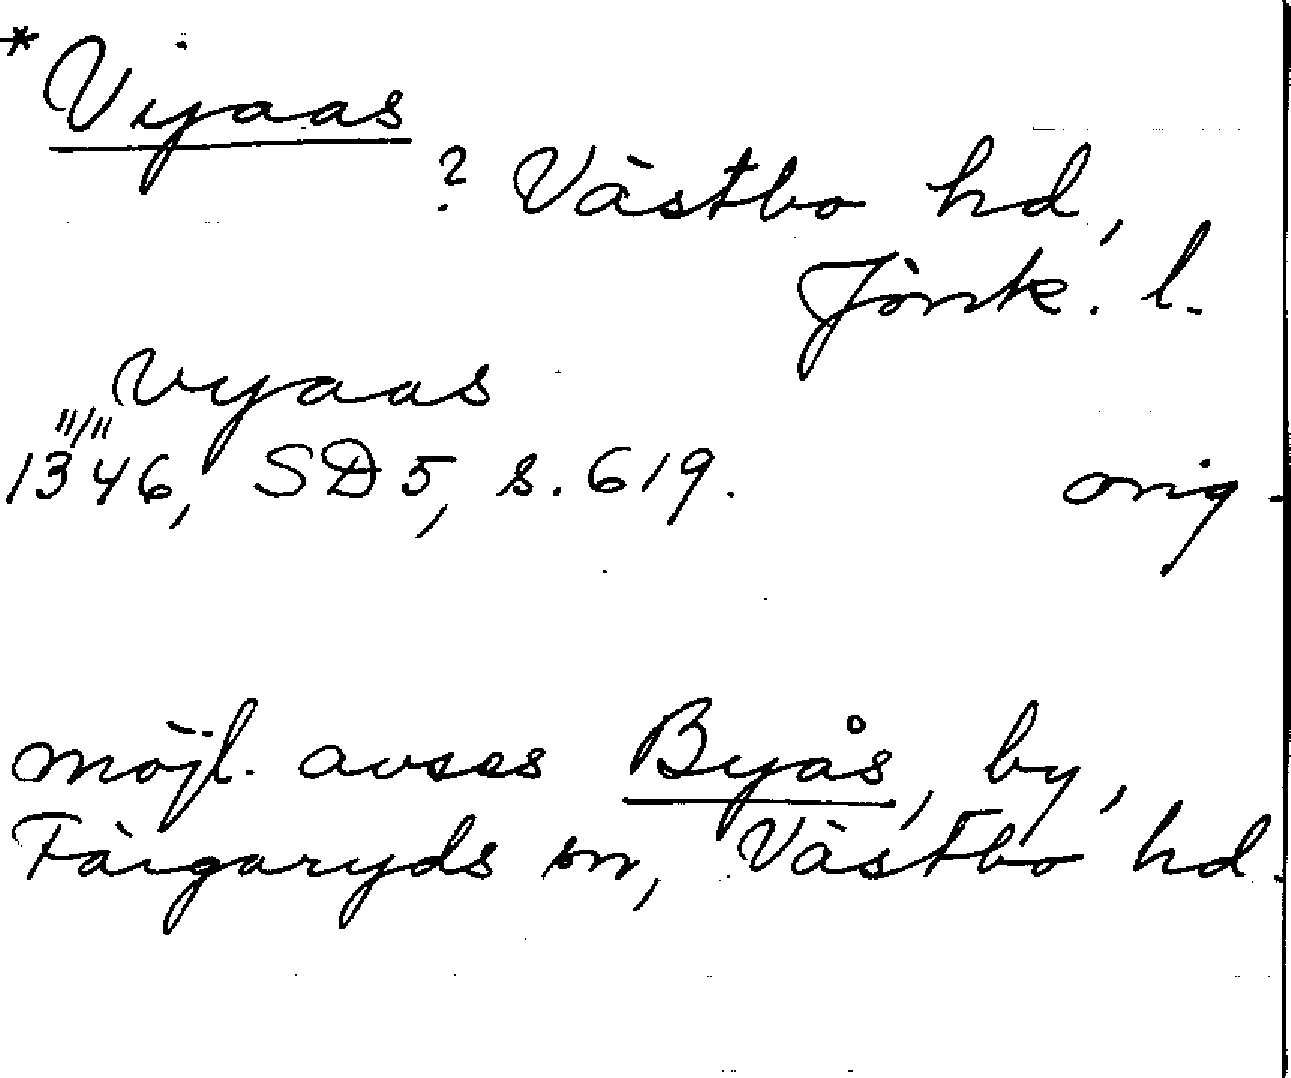 *Vijaas
? Västbo hd,
Jönk. l.
vyaas
11/11
1346, SD 5, s. 619. orig.
möjl. avses Byås, by,
Färgaryds sn, Västbo hd.